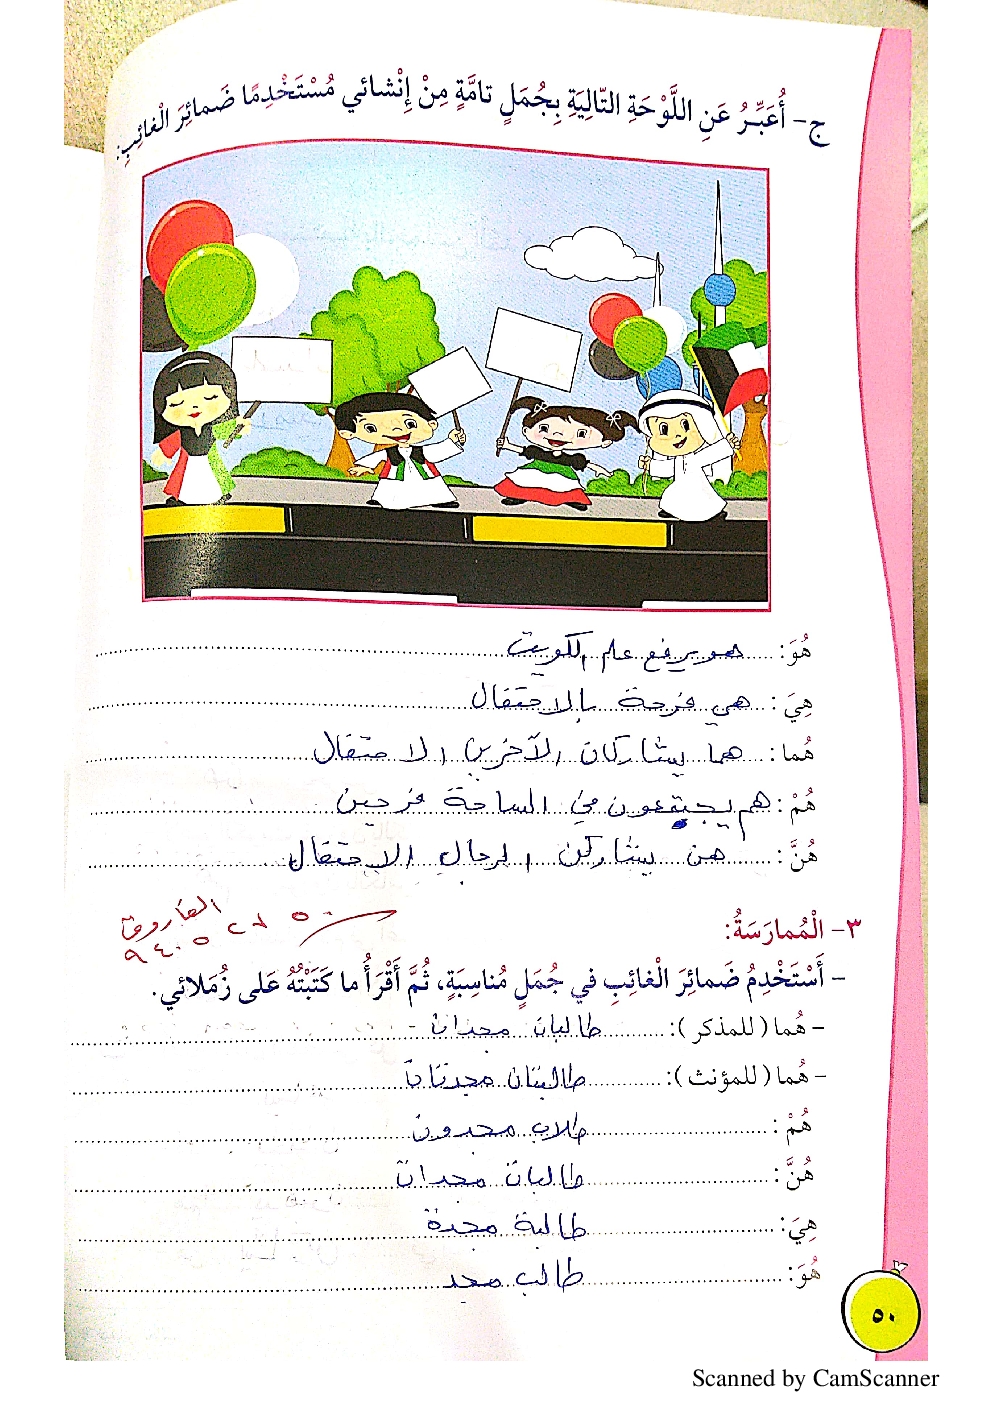 ج- أُعَبِّرُ عَنِ اللَّوْحَةِ التّالِيَةِ بِجُمَلٍ تامَّةٍ مِنْ إِنْشائي مُسْتَخْدِمًا ضَمائِرَ الْغائِبِ:
هُوَ: هو يرفع علم الكويت
هِيَ: هي فرحة بالاحتفال
هُما: هما يشاركان الآخرين الاحتفال
هُمْ: هم يجتمعون في الساحة فرحين
هُنَّ: هن يشاركن الرجال الاحتفال
الفاروق
٩٤٠٥٢٦٥٠
٣- الْمُمارَسَةُ:
- أَسْتَخْدِمُ ضَمائِرَ الْغائِبِ في جُمَلٍ مُناسِبَةٍ، ثُمَّ أَقْرَأُ ما كَتَبْتُهُ عَلى زُمَلائي.
- هُما (للمذكر): طالبان مجدان
- هُما (للمؤنث): طالبتان مجدتان
هُمْ: طلاب مجدون
هُنَّ: طالبات مجدات
هِيَ: طالبة مجدة
هُوَ: طالب مجد
٥٠
Scanned by CamScanner